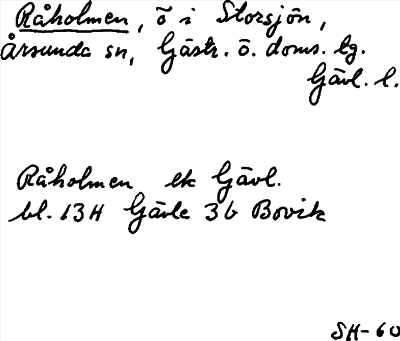 Råholmen, ö i Storsjön,
Årsunda sn, Gästr. ö. doms. tg.
Gävl. l.
Råholmen ek Gävl.
bl. 13H Gävle 3b Bovik
SH-60